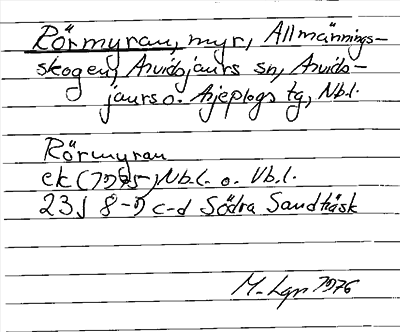 Rörmyran, myr, Allmännings-
skogen, Arvidsjaurs sn, Arvids-
jaurs o. Arjeplogs tg, Nb.l.
Rörmyran
ek (1965) Nb.l. o. Vb.l.
23J 8-9 c-d Södra Sandträsk
M. Lgr 1976